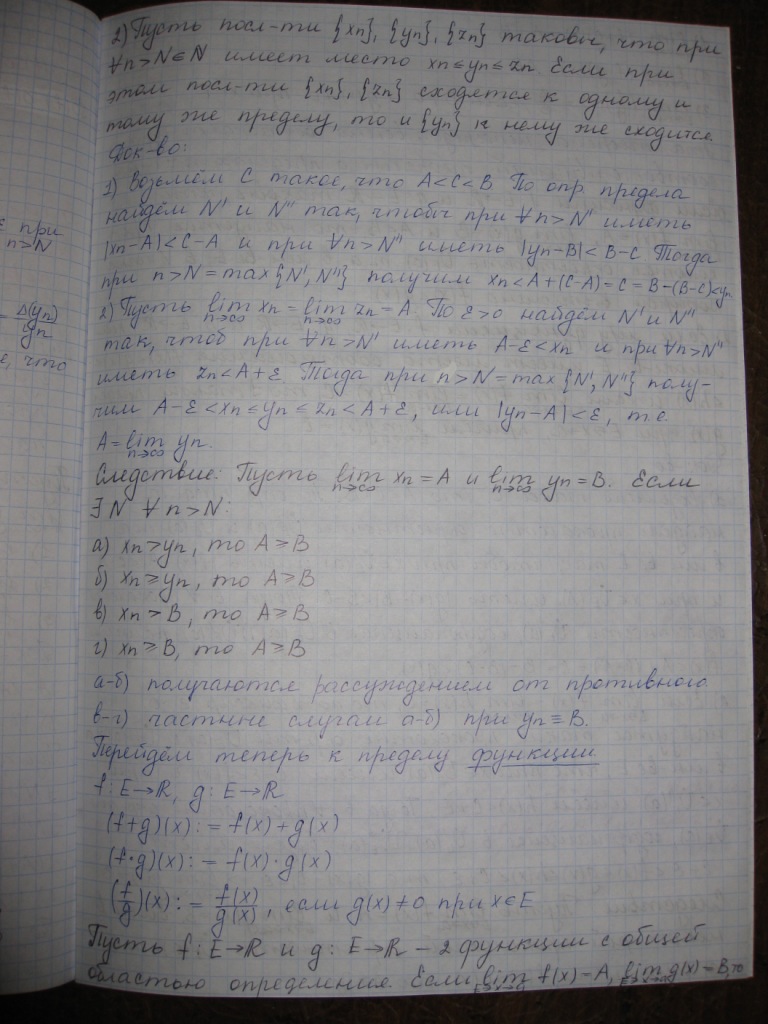 при
n>N
Δ(yn)
yn
е, что
2) Пусть посл-ти {xn}, {yn}, {zn} таковы, что при
∀n>N∈ℕ имеет место xn≤yn≤zn. Если при
этом посл-ти {xn}, {zn} сходятся к одному и
тому же пределу, то и {yn} к нему же сходится.
Док-во:
1) Возьмём C такое, что A<C<B. По опр. предела
найдём N' и N'' так, чтобы при ∀n>N' иметь
|xn-A|<C-A и при ∀n>N'' иметь |yn-B|<B-C. Тогда
при n>N=max{N', N''} получим xn<A+(C-A)=C=B-(B-C)<yn
2) Пусть lim n→∞ xn = lim n→∞ zn = A. По ε>0 найдём N' и N''
так, чтоб при ∀n>N' иметь A-ε<xn и при ∀n>N''
иметь zn<A+ε. Тогда при n>N=max{N', N''} полу-
чим A-ε<xn≤yn≤zn<A+ε, или |yn-A|<ε, т.е.
A=lim n→∞ yn.
Следствие: Пусть lim n→∞ xn = A и lim n→∞ yn = B. Если
∃N ∀n>N:
а) xn>yn, то A≥B
б) xn≥yn, то A≥B
в) xn>B, то A≥B
г) xn≥B, то A≥B
а-б) получаются рассуждением от противного.
в-г) частные случаи а-б) при yn≡B.
Перейдём теперь к пределу функции
f: E→ℝ, g: E→ℝ
(f+g)(x):=f(x)+g(x)
(f·g)(x):=f(x)·g(x)
(f/g)(x):=f(x)/g(x), если g(x)≠0 при x∈E
Пусть f: E→ℝ и g: E→ℝ – 2 функции с общей
областью определения. Если lim f(x)=A, lim g(x)=B, то